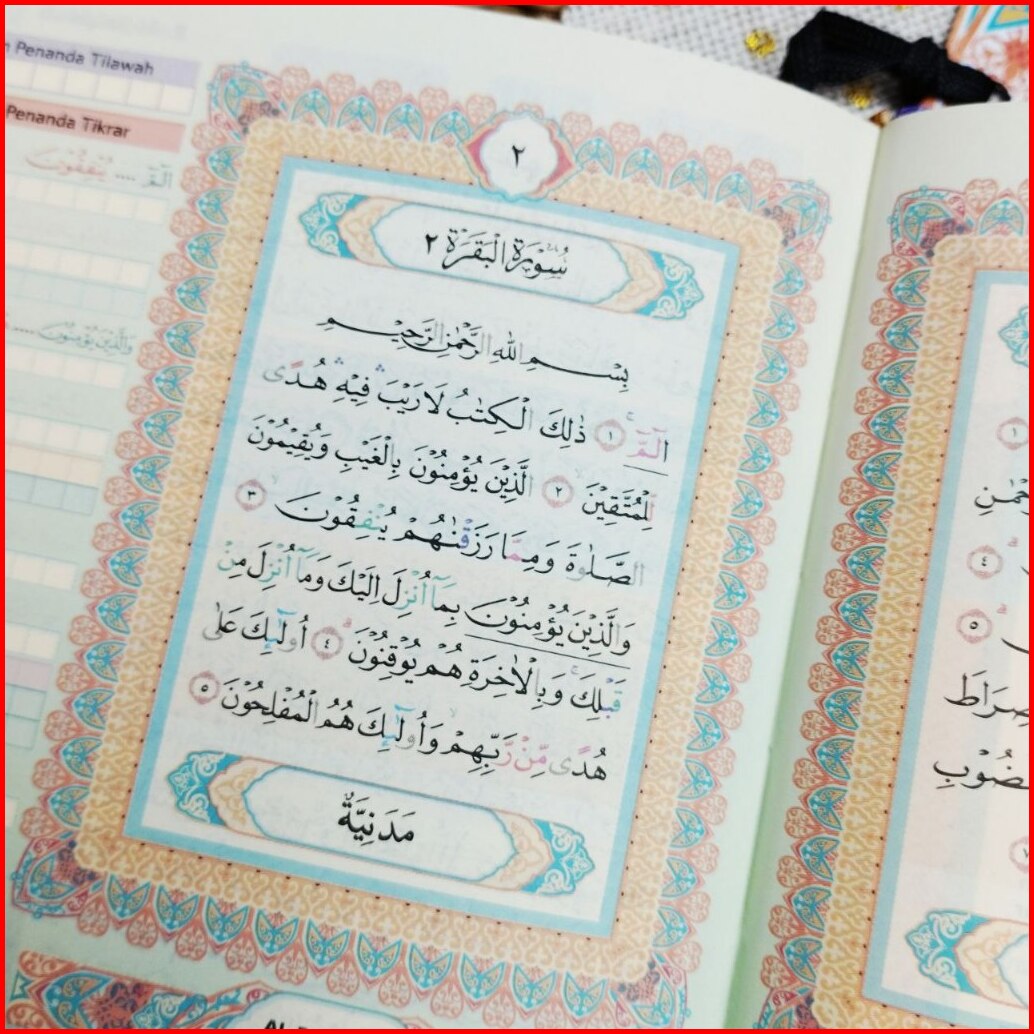 Penanda Tilawah
Penanda Tikrar
الٓمّٓ .... يُنْفِقُوْنَ
وَالَّذِيْنَ يُؤْمِنُوْنَ ....
٢
سُوْرَةُ الْبَقَرَةِ ٢
بِسْمِ اللّٰهِ الرَّحْمٰنِ الرَّحِيْمِ
الٓمّٓ ۚ ١ ذٰلِكَ الْكِتٰبُ لَا رَيْبَ ۛ فِيْهِ ۛ هُدًى
لِّلْمُتَّقِيْنَ ۙ ٢ الَّذِيْنَ يُؤْمِنُوْنَ بِالْغَيْبِ وَيُقِيْمُوْنَ
الصَّلٰوةَ وَمِمَّا رَزَقْنٰهُمْ يُنْفِقُوْنَ ۙ ٣
وَالَّذِيْنَ يُؤْمِنُوْنَ بِمَآ اُنْزِلَ اِلَيْكَ وَمَآ اُنْزِلَ مِنْ
قَبْلِكَ ۚ وَبِالْاٰخِرَةِ هُمْ يُوْقِنُوْنَ ۗ ٤ اُولٰۤىِٕكَ عَلٰى
هُدًى مِّنْ رَّبِّهِمْ ۙ وَاُولٰۤىِٕكَ هُمُ الْمُفْلِحُوْنَ ٥
مَدَنِيَّةٌ
١
٤
٥
صِرَاطَ